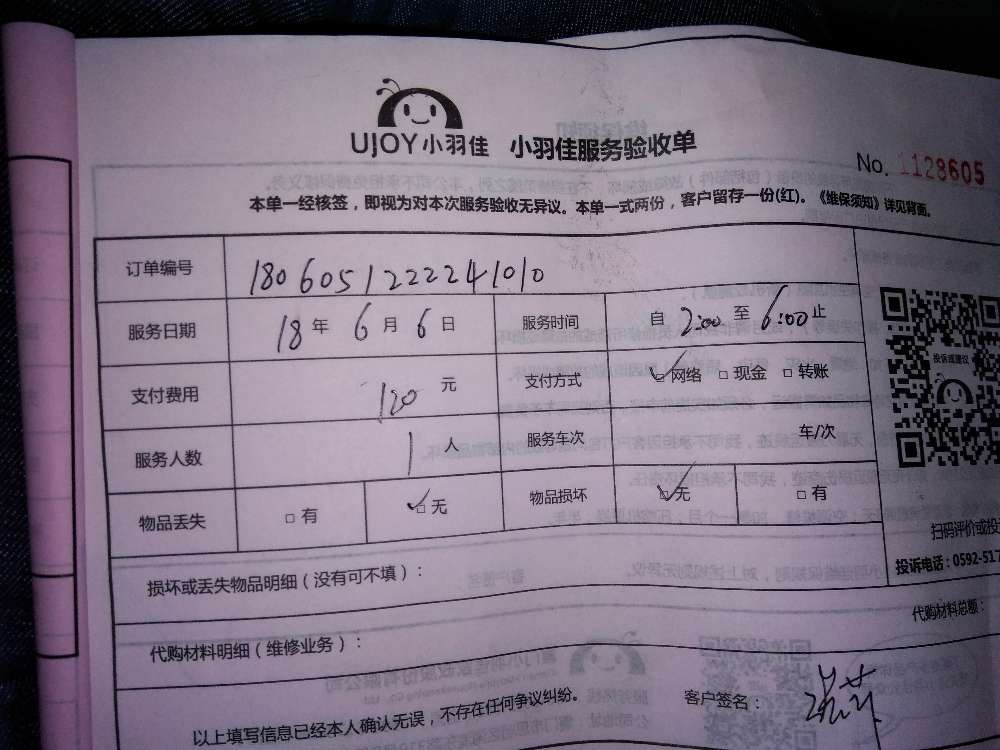 UJOY小羽佳 小羽佳服务验收单
No. 1128605
本单一经核签，即视为对本次服务验收无异议。本单一式两份，客户留存一份(红)。《维保须知》详见背面。
订单编号 1806051222241010
服务日期 18 年 6 月 6 日 服务时间 自 2:00 至 6:00 止
支付费用 120 元 支付方式 ☑网络 □现金 □转账
服务人数 1 人 服务车次 车/次
物品丢失 □有 ☑无 物品损坏 ☑无 □有
投诉或建议
扫码评价或投
投诉电话：0592-517
损坏或丢失物品明细（没有可不填）：
代购材料明细（维修业务）： 代购材料总额：
以上填写信息已经本人确认无误，不存在任何争议纠纷。 客户签名：